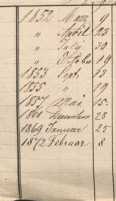 1852 März 9
" April 25
" July 30
" October 19
1853 Sept. 13
1855 " 19
1857 Mai 15
1860 December 28
1869 Januar 25
1872 Februar 8